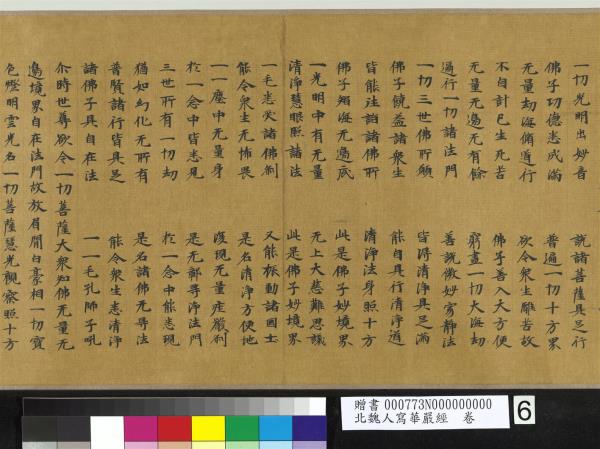 一切光明出妙音 說諸菩薩具足行
佛子功德悉成滿 普遍一切十方界
无量劫海脩道行 欲令眾生離苦故
不自計己生死苦 佛子善入大方便
无量无邊无有餘 窮盡一切大海劫
遍行一切諸法門 善說微妙寂靜法
一切三世佛所願 皆得清淨具足滿
佛子饒益諸眾生 能自具行清淨道
皆能往詣諸佛所 清淨法身照十方
佛子智海无邊底 此是佛子妙境界
一光明中有无量 无上大慈難思議
清淨慧眼照諸法 此是佛子妙境界
一毛悉受諸佛剎 又能振動諸國土
能令眾生无怖畏 是名清淨方便地
一一塵中无量身 復現无量莊嚴剎
於一念中皆悉見 是无鄣㝵淨法門
三世所有一切劫 於一念中能悉現
猶如幻化无所有 是名諸佛无㝵法
普賢諸行皆具足 能令眾生悉清淨
諸佛子具自在法 一一毛孔師子吼
尒時世尊欲令一切菩薩大眾知佛无量无
邊境界自在法門故放眉間白豪相一切寶
色燈明雲光名一切菩薩慧光觀察照十方
贈書 000773N000000000
北魏人寫華嚴經 卷
6